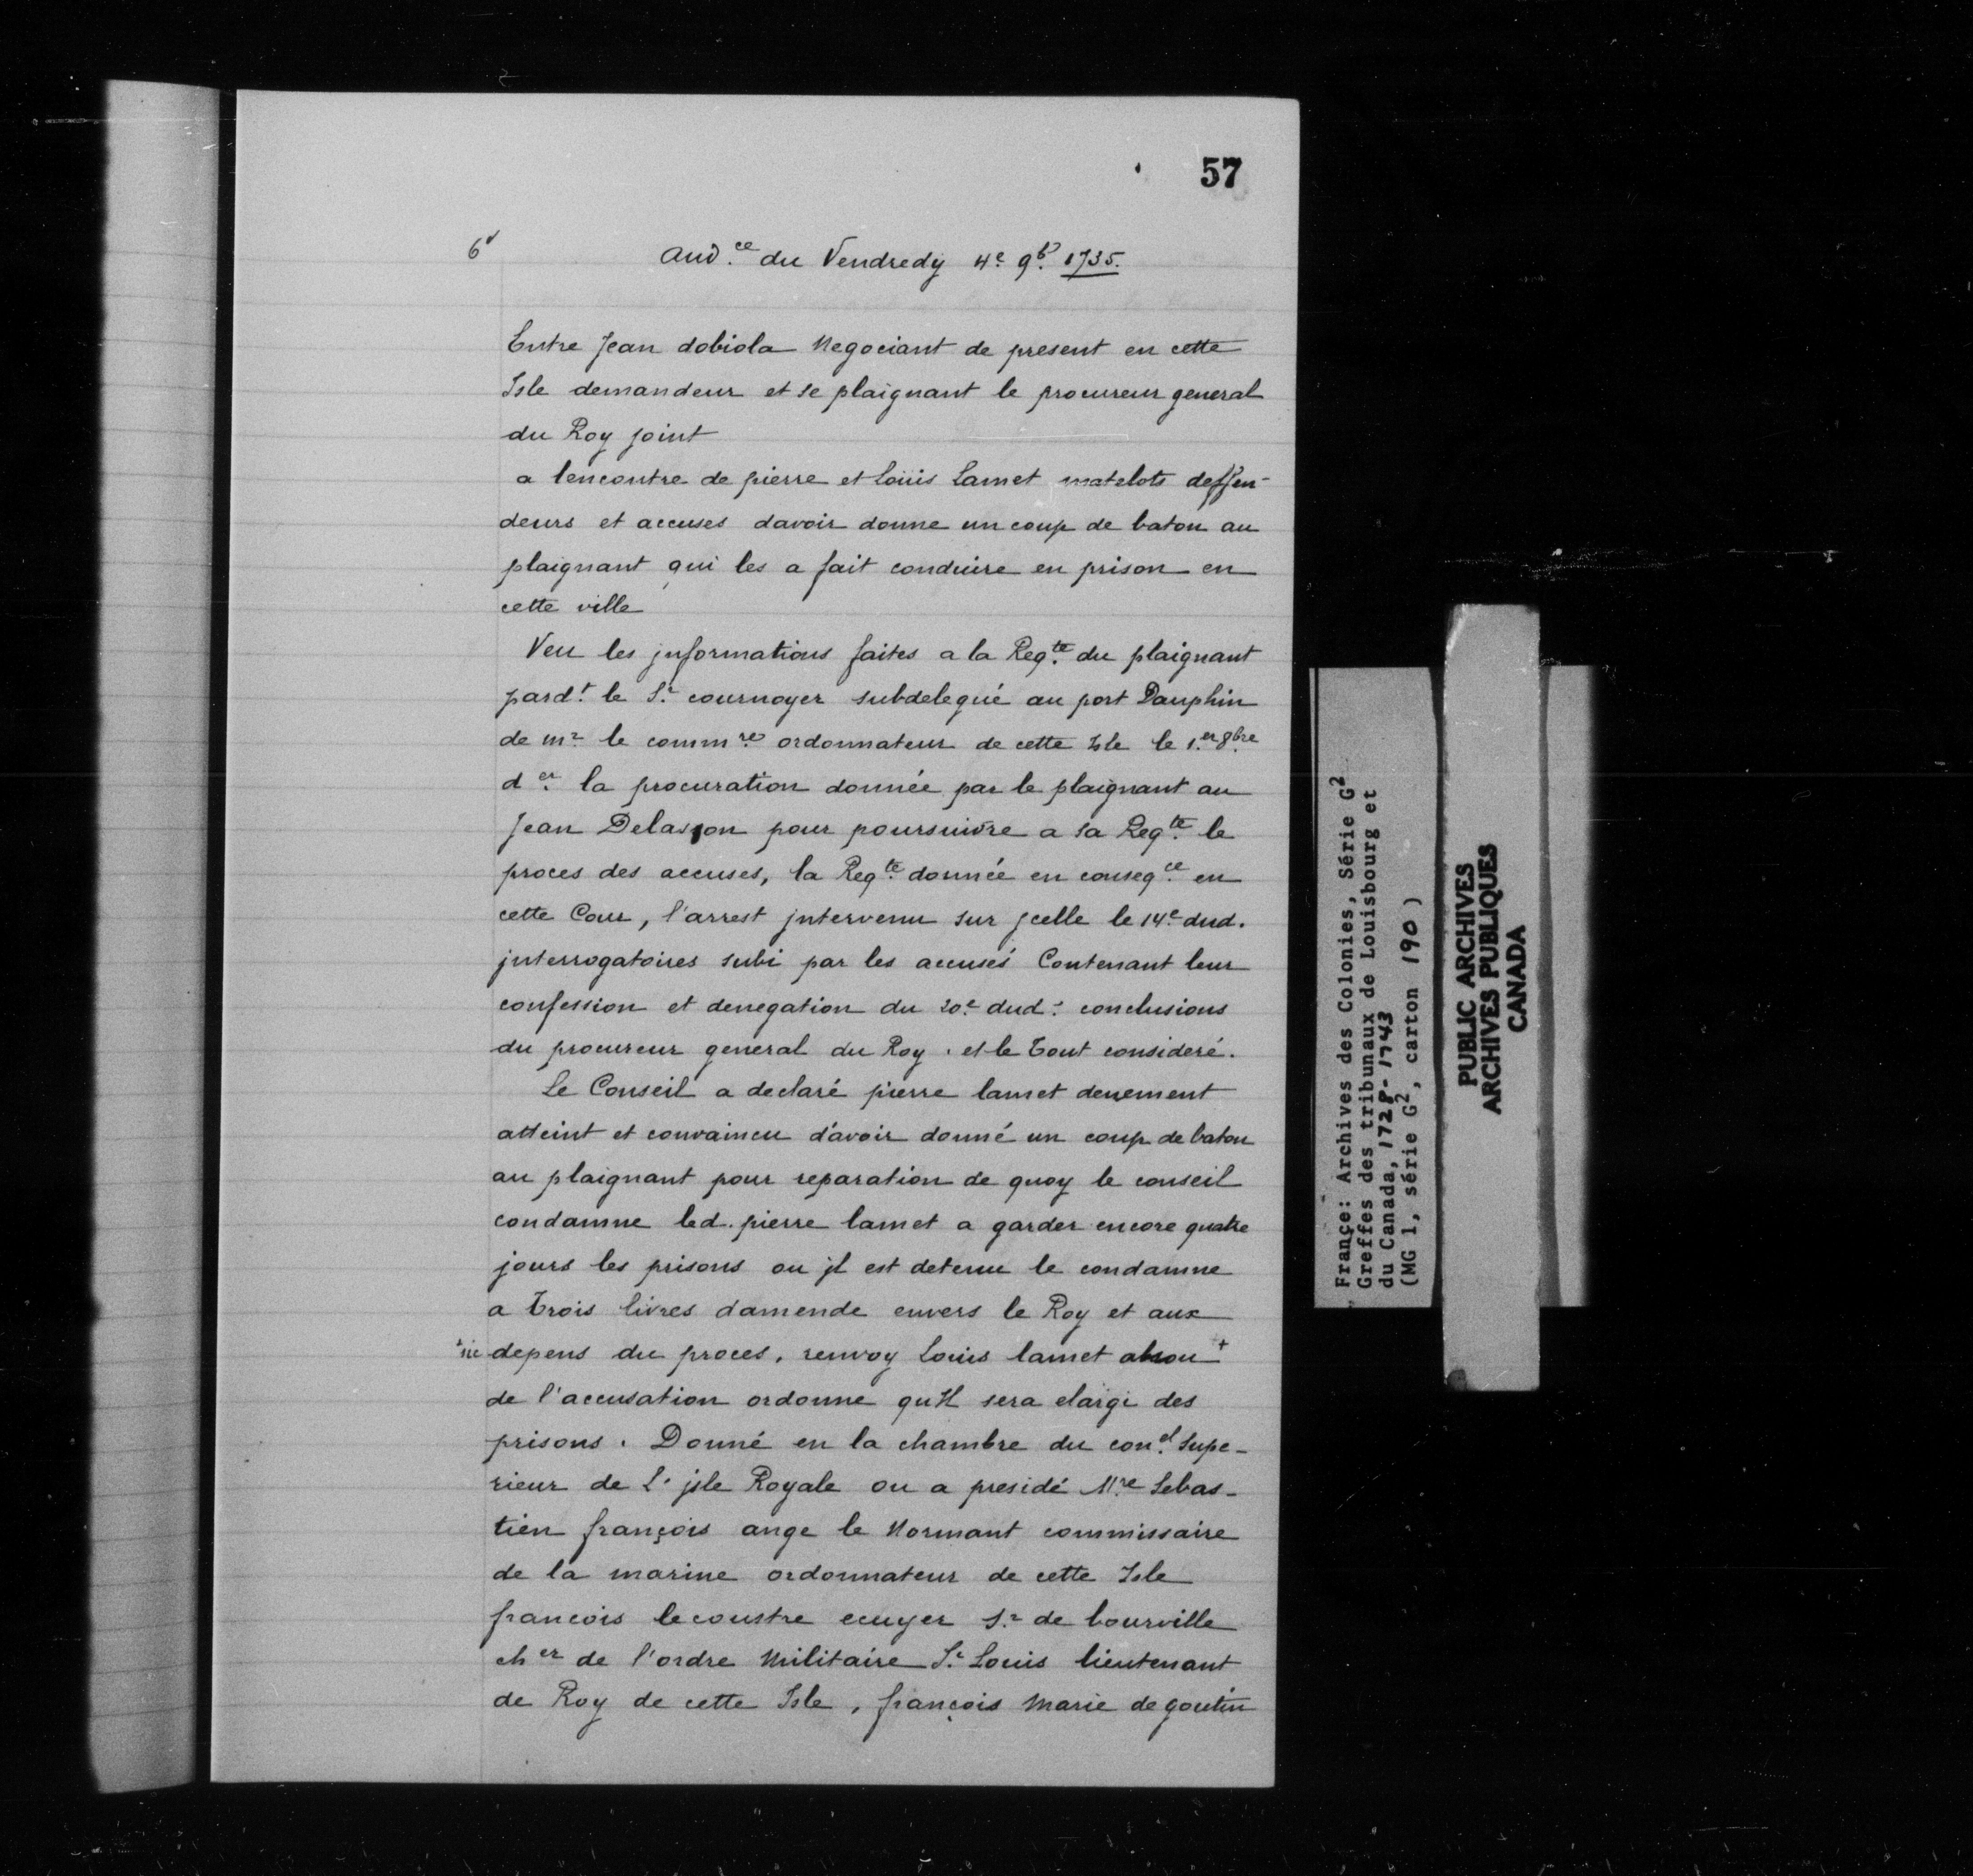 57
6v
Aud.ce du Vendredy 4e. 9b. 1735.
Entre Jean dobiola Negociant de present en cette
Isle demandeur et se plaignant le procureur general
du Roy joint
a lencontre de pierre et Loüis Lamet matelots deffen-
deurs et accuses davoir donne un coup de baton au
plaignant qui les a fait conduire en prison en
cette ville
Veu les jnformations faites a la Reqte. du plaignant
pardt. le Sr. cournoyer subdelegué au port Dauphin
de mr. le commre. ordonnateur de cette Isle le 1.er 8bre.
der. la procuration donnée par le plaignant au
Jean Delasson pour poursuivre a sa Reqte. le
proces des accuses, la Reqte. donnée en conseqce. en
cette Cour, l'arrest jntervenu sur jcelle le 14e. dud.
jnterrogatoires subi par les accusés Contenant leur
confession et denegation du 20e. dud. conclusions
du procureur general du Roy. et le tout consideré.
Le Conseil a declaré pierre lamet deuement
atteint et convaincu d'avoir donné un coup de baton
au plaignant pour reparation de quoy le conseil
condamne led. pierre lamet a garder encore quatre
jours les prisons ou jl est detenu le condamne
a trois livres damende envers le Roy et aux
+ sic depens du proces, renvoy Louis lamet absou +
de l'accusation ordonne qu'Il sera elargi des
prisons. Donné en la chambre du conel. Supe-
rieur de L'jsle Royale ou a presidé Mre. Sebas-
tien françois ange le Normant commissaire
de la marine ordonnateur de cette Isle
francois lecoustre ecuyer Sr. de bourville
cher de l'ordre Militaire St. Louis lieutenant
de Roy de cette Isle, françois Marie de goutin
France: Archives des Colonies, Série G2
Greffes des tribunaux de Louisbourg et
du Canada, 1728-1743
(MG 1, série G2, carton 190 )
PUBLIC ARCHIVES
ARCHIVES PUBLIQUES
CANADA